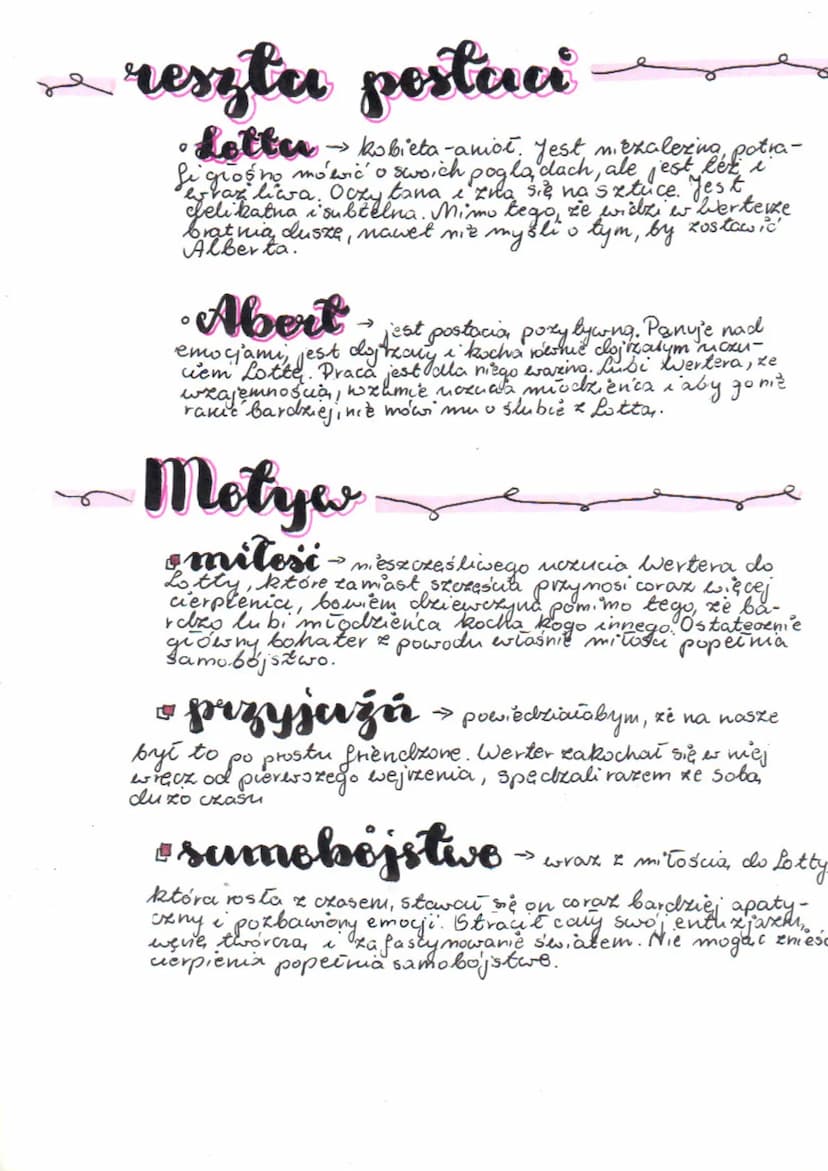 reszta postaci
Lotta → kobieta-anioł. Jest niezależna, potra-
fi głośno mówić o swoich poglądach, ale jest też i
wrażliwa. Oczytana i zna się na sztuce. Jest
delikatna i subtelna. Mimo tego, że widzi w Werterze
bratnią duszę, nawet nie myśli o tym, by zostawić
Alberta.
Abert → jest postacią pozytywną. Panuje nad
emocjami, jest dojrzały i kocha równie dojrzałym uczu-
ciem Lottę. Praca jest dla niego ważna. Lubi Wertera, ze
wzajemnością, rozumie uczucia młodzieńca i aby go nie
ranić bardziej, nie mówi mu o ślubie z Lottą.
Motyw
miłość → nieszczęśliwego uczucia Wertera do
Lotty, które zamiast szczęścia przynosi coraz więcej
cierpienia, bowiem dziewczyna pomimo tego, że ba-
rdzo lubi młodzieńca kocha kogo innego. Ostatecznie
główny bohater z powodu właśnie miłości popełnia
samobójstwo.
przyjaźń → powiedziałabym, że na nasze
był to po prostu friendzone. Werter zakochał się w niej
wręcz od pierwszego wejrzenia, spędzali razem ze sobą
dużo czasu
samobójstwo → wraz z miłością do Lotty
która rosła z czasem, stawał się on coraz bardziej apaty-
czny i pozbawiony emocji. Stracił cały swój entuzjazm,
wenę twórczą i zafascynowanie światem. Nie mogąc znieść
cierpienia popełnia samobójstwo.